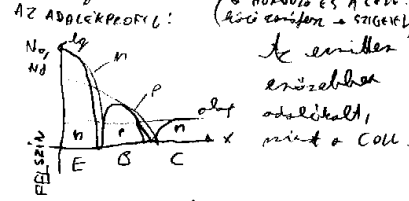 AZ ADALÉKPROFIL:
(A HORDOZÓ ÉS A COLL.
→ SZIGETEL
Na,
Nd
lg
n
p
alap
n
p
n
x
E B C
FELSZÍN
Az emitter
erősebben
adalékolt,
mint a Coll.